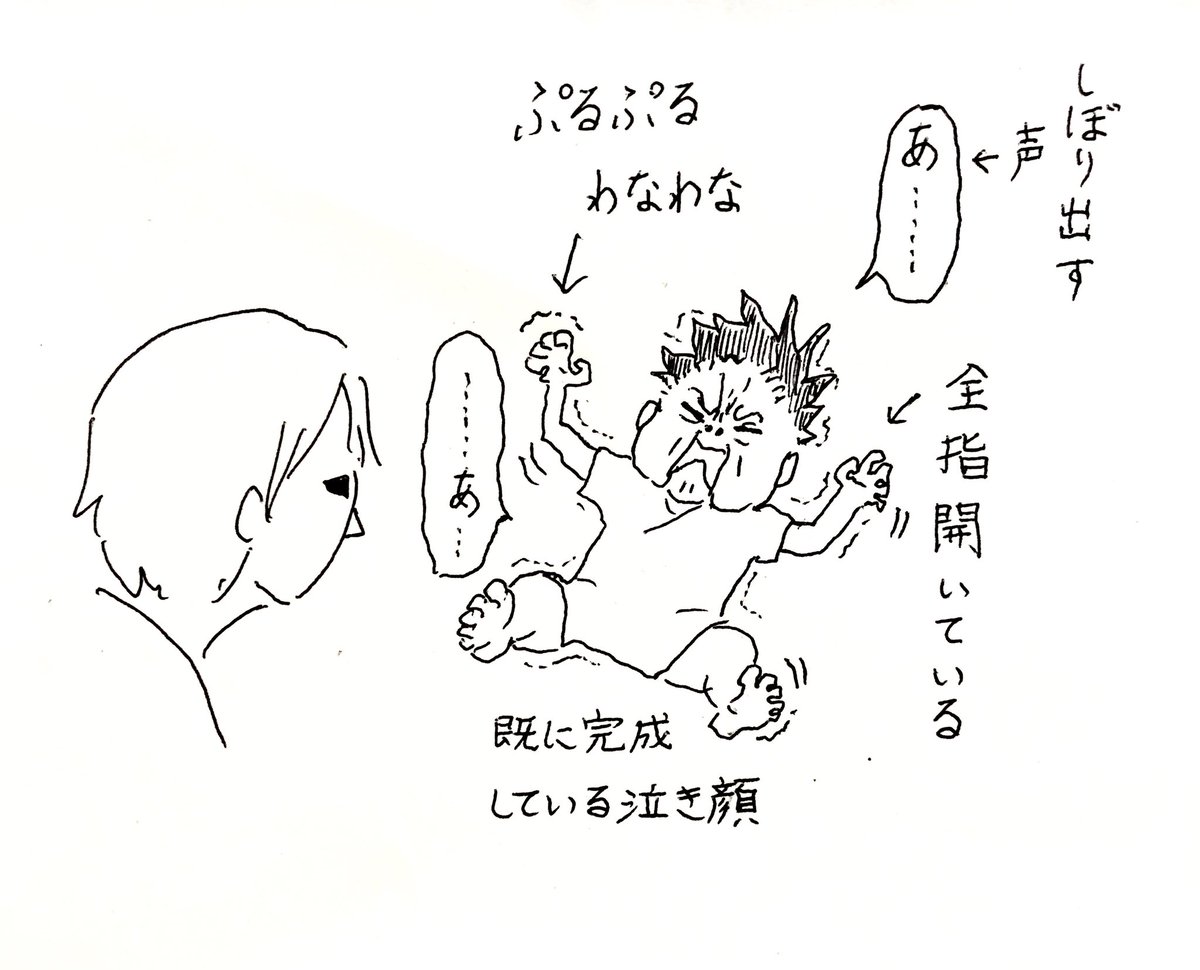 しぼり出す
声
あ……
ぷるぷる
わなわな
全指開いている
……あ…
既に完成
している泣き顔